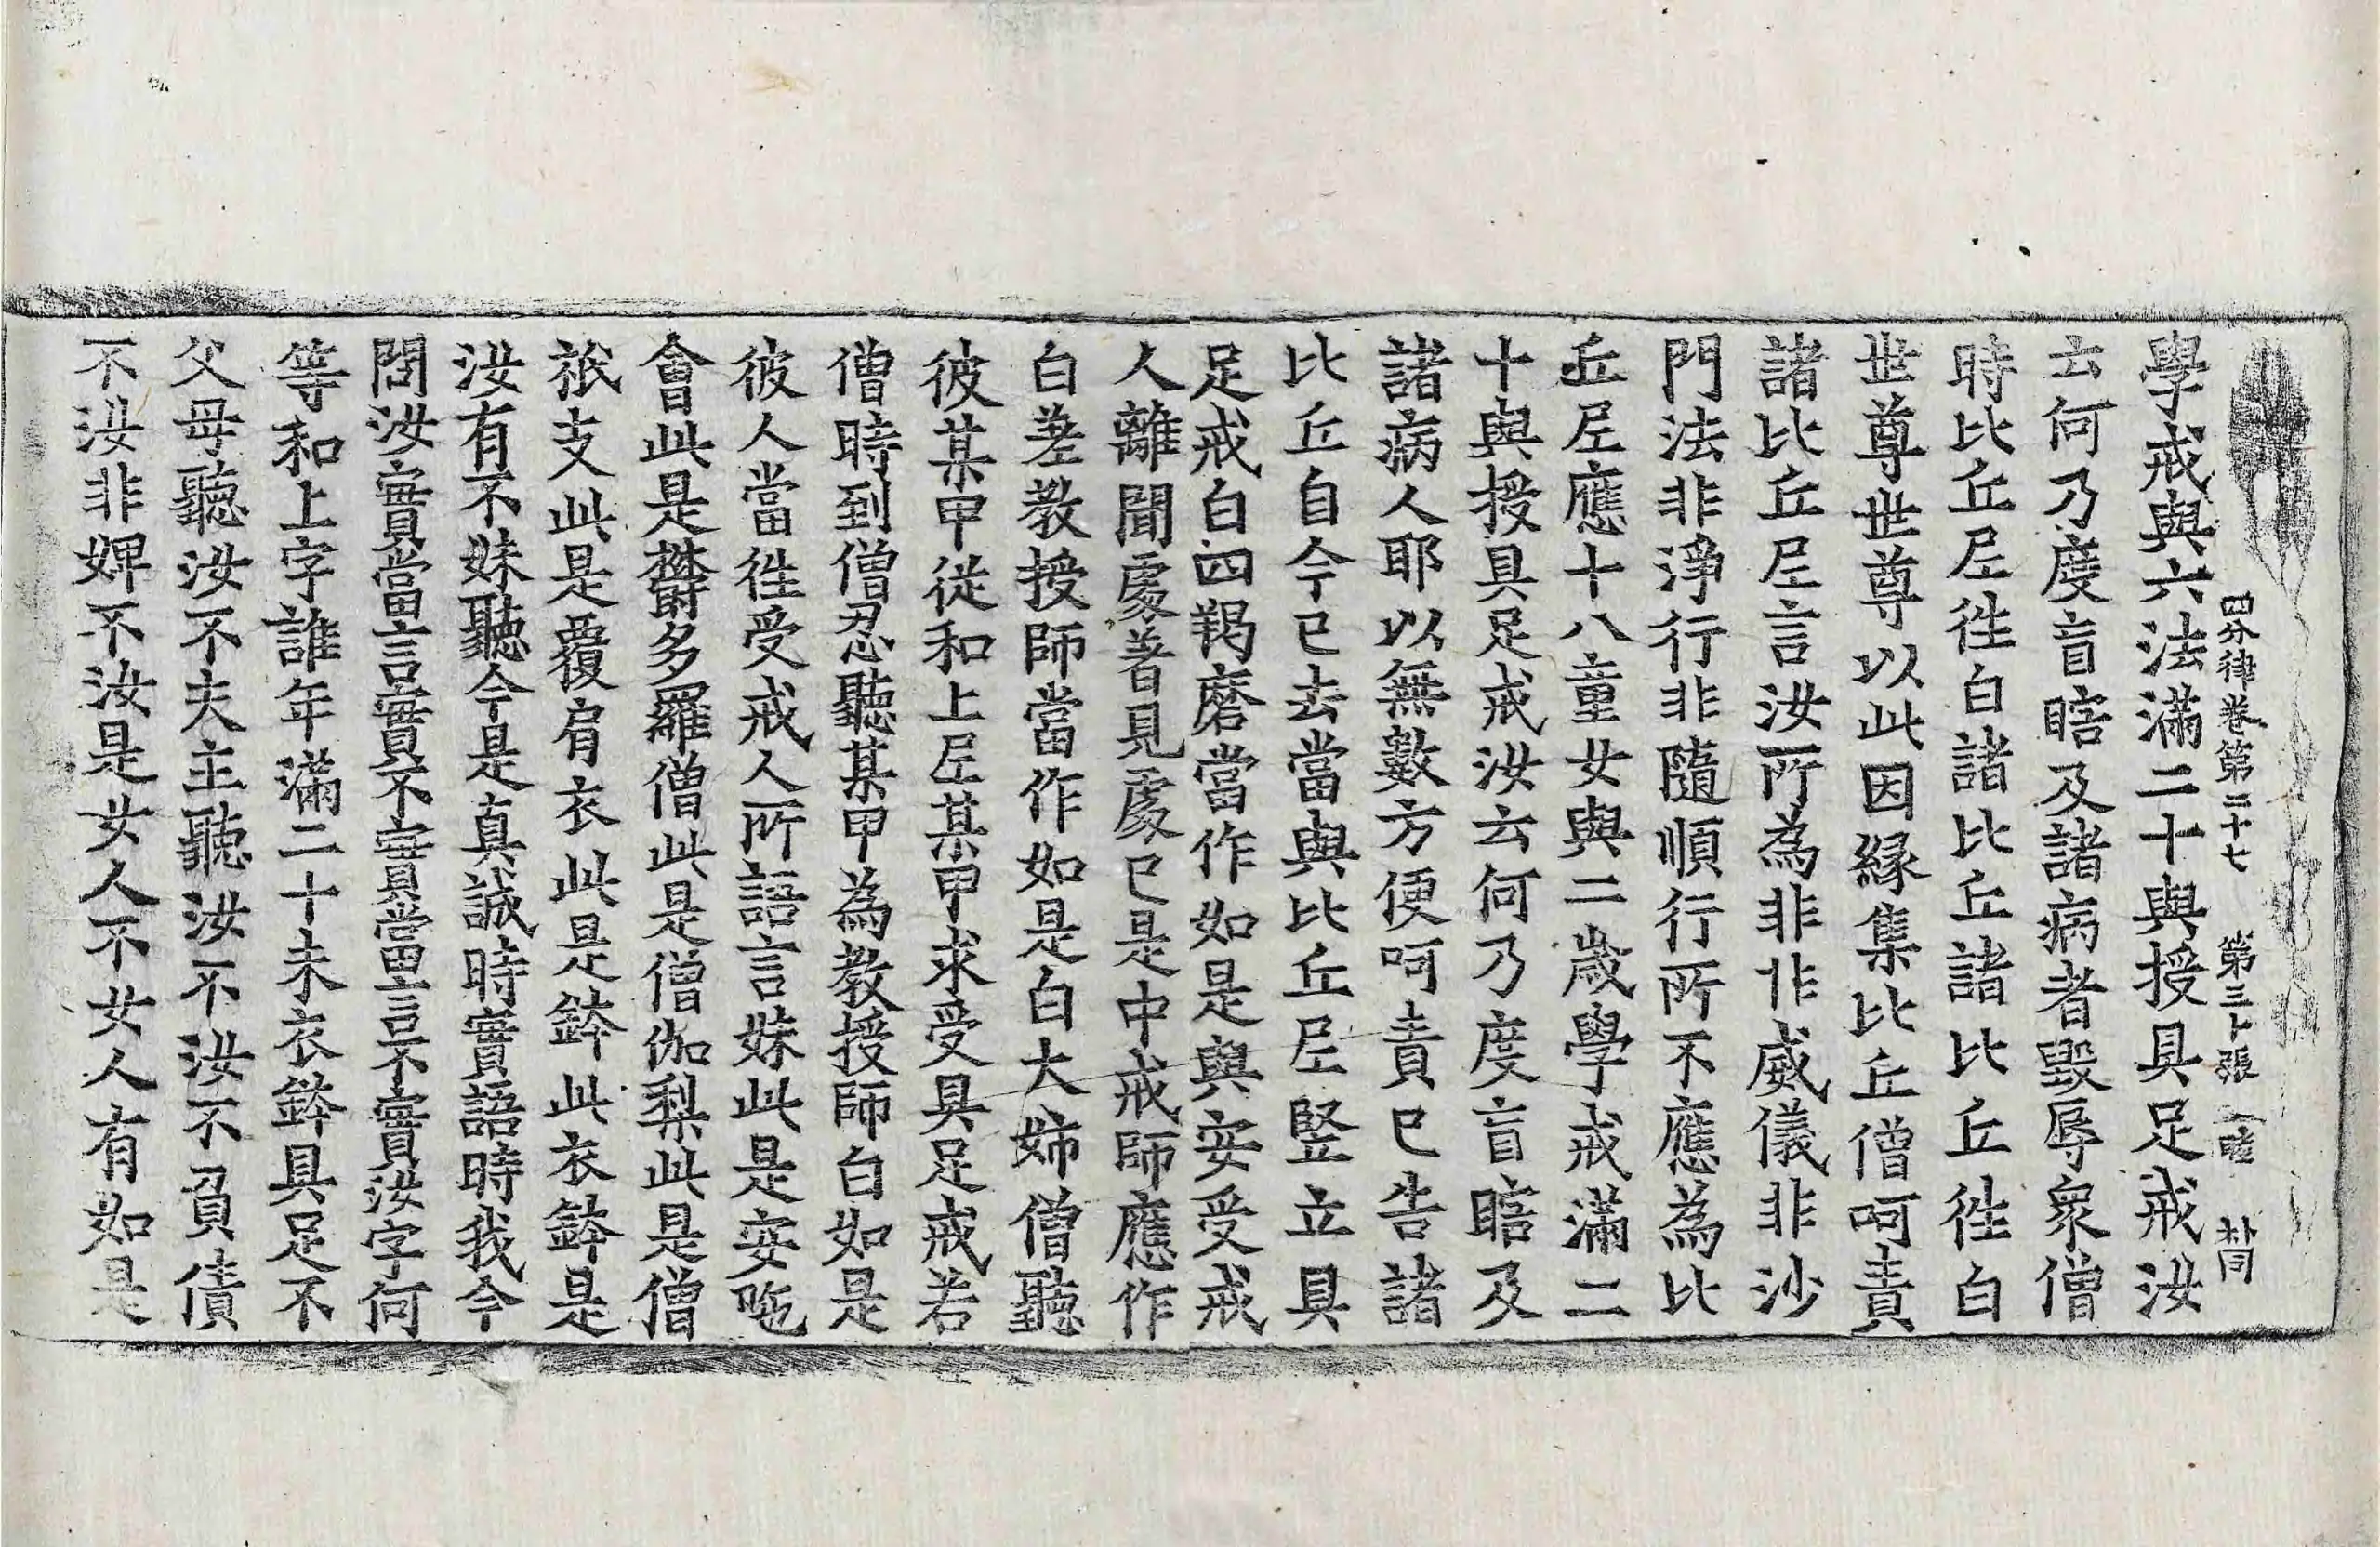 四分律卷第二十七 第三卜張 睦 朴同
學戒與六法滿二十與授具足戒汝
云何乃度盲瞎及諸病者毀辱衆僧
時比丘尼徃白諸比丘諸比丘徃白
世尊世尊以此因緣集比丘僧呵責
諸比丘尼言汝所為非非威儀非沙
門法非淨行非隨順行所不應為比
丘尼應十八童女與二歲學戒滿二
十與授具足戒汝云何乃度盲瞎及
諸病人耶以無數方便呵責已告諸
比丘自今已去當與比丘尼竪立具
足戒白四羯磨當作如是與安受戒
人離聞處著見處已是中戒師應作
白差教授師當作如是白大姉僧聽
彼某甲從和上尼某甲求受具足戒若
僧時到僧忍聽某甲為教授師白如是
彼人當徃受戒人所語言妹此是安陁
會此是欝多羅僧此是僧伽梨此是僧
祇支此是覆肩衣此是鉢此衣鉢是
汝有不妹聽今是真誠時實語時我今
問汝實當言實不實當言不實汝字何
等和上字誰年滿二十未衣鉢具足不
父母聽汝不夫主聽汝不汝不負債
不汝非婢不汝是女人不女人有如是